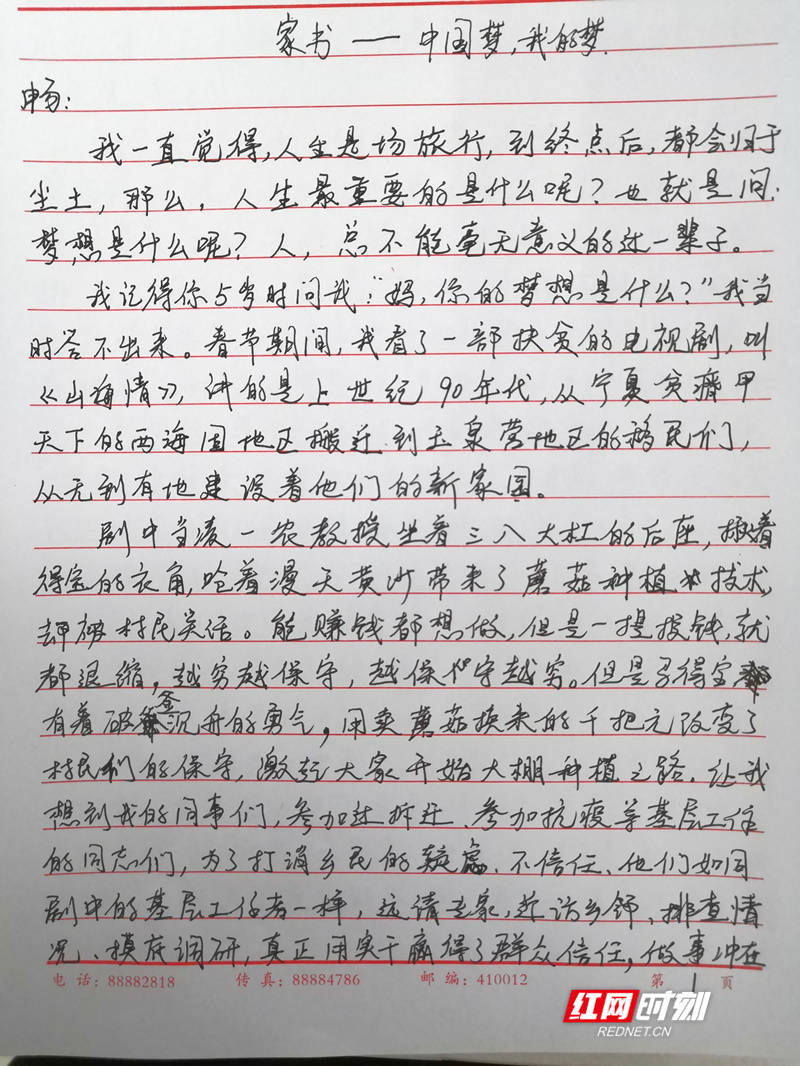 家书 — 中国梦,我的梦.
畅:
我一直觉得,人生是场旅行,到终点后,都会归于
尘土,那么,人生最重要的是什么呢?也就是问:
梦想是什么呢?人,总不能毫无意义的过一辈子。
我记得你5岁时问我:"妈,你的梦想是什么?"我当
时答不出来。春节期间,我看了一部扶贫的电视剧,叫
《山海情》,讲的是上世纪90年代,从宁夏贫瘠甲
天下的西海固地区搬迁到玉泉营地区的移民们,
从无到有地建设着他们的新家园。
剧中当凌一农教授坐着三八大杠的后座,揪着
得宝的衣角,呛着漫天黄沙带来了蘑菇种植技术,
却被村民笑话。能赚钱都想做,但是一提投钱,就
都退缩,越穷越保守,越保守越穷。但是马得宝
有着破釜沉舟的勇气,用卖蘑菇换来的千把元改变了
村民们的保守,激起大家开始大棚种植之路.让我
想到我的同事们,参加过拆迁、参加抗疫等基层工作
的同志们,为了打消乡民的疑虑、不信任、他们如同
剧中的基层工作者一样,远请专家,近访乡邻、排查情
况、摸底调研,真正用实干赢得了群众信任,做事冲在
电话:88882818 传真:88884786 邮编:410012 第 1 页
红网时刻
REDNET.CN